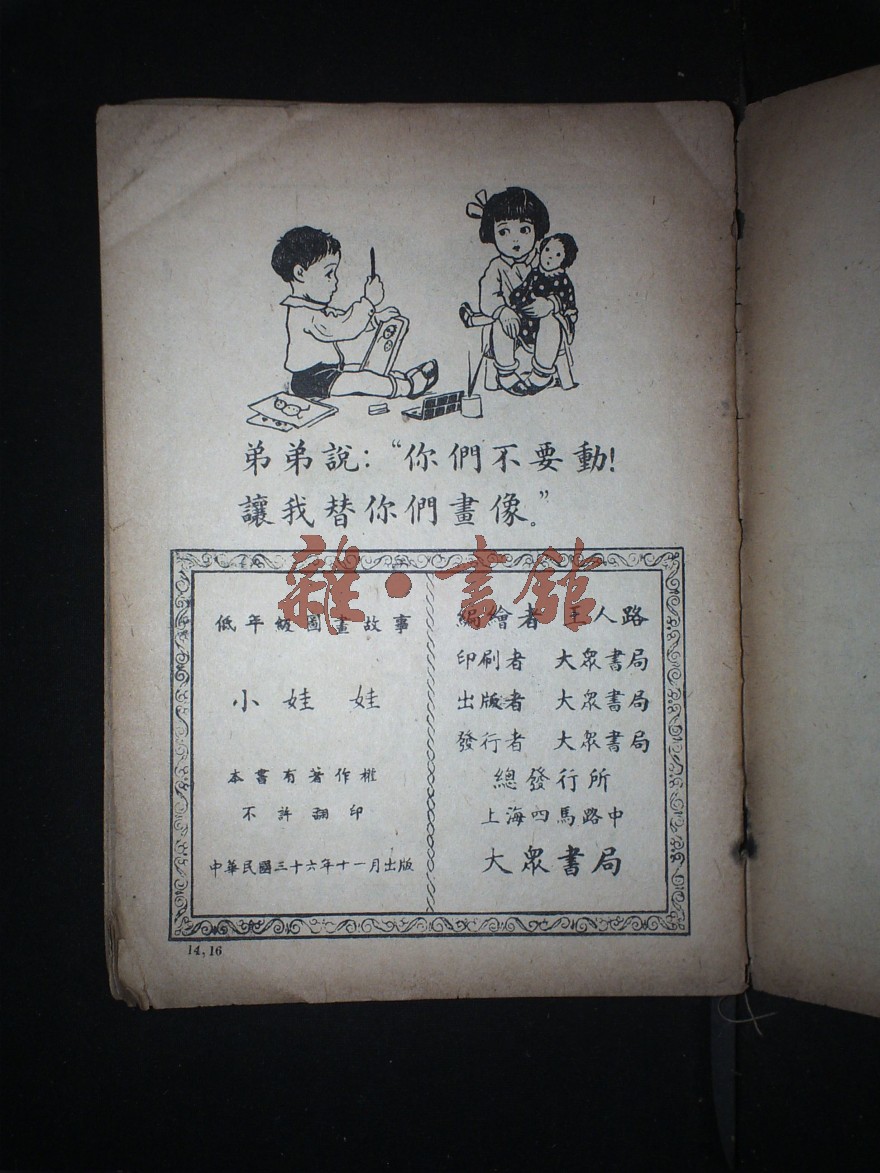 弟弟說：“你們不要動！
讓我替你們畫像。”
雜·書館
低年級圖畫故事
小娃娃
本書有著作權
不許翻印
中華民國三十六年十一月出版
編繪者 王人路
印刷者 大眾書局
出版者 大眾書局
發行者 大眾書局
總發行所
上海四馬路中
大眾書局
14,16